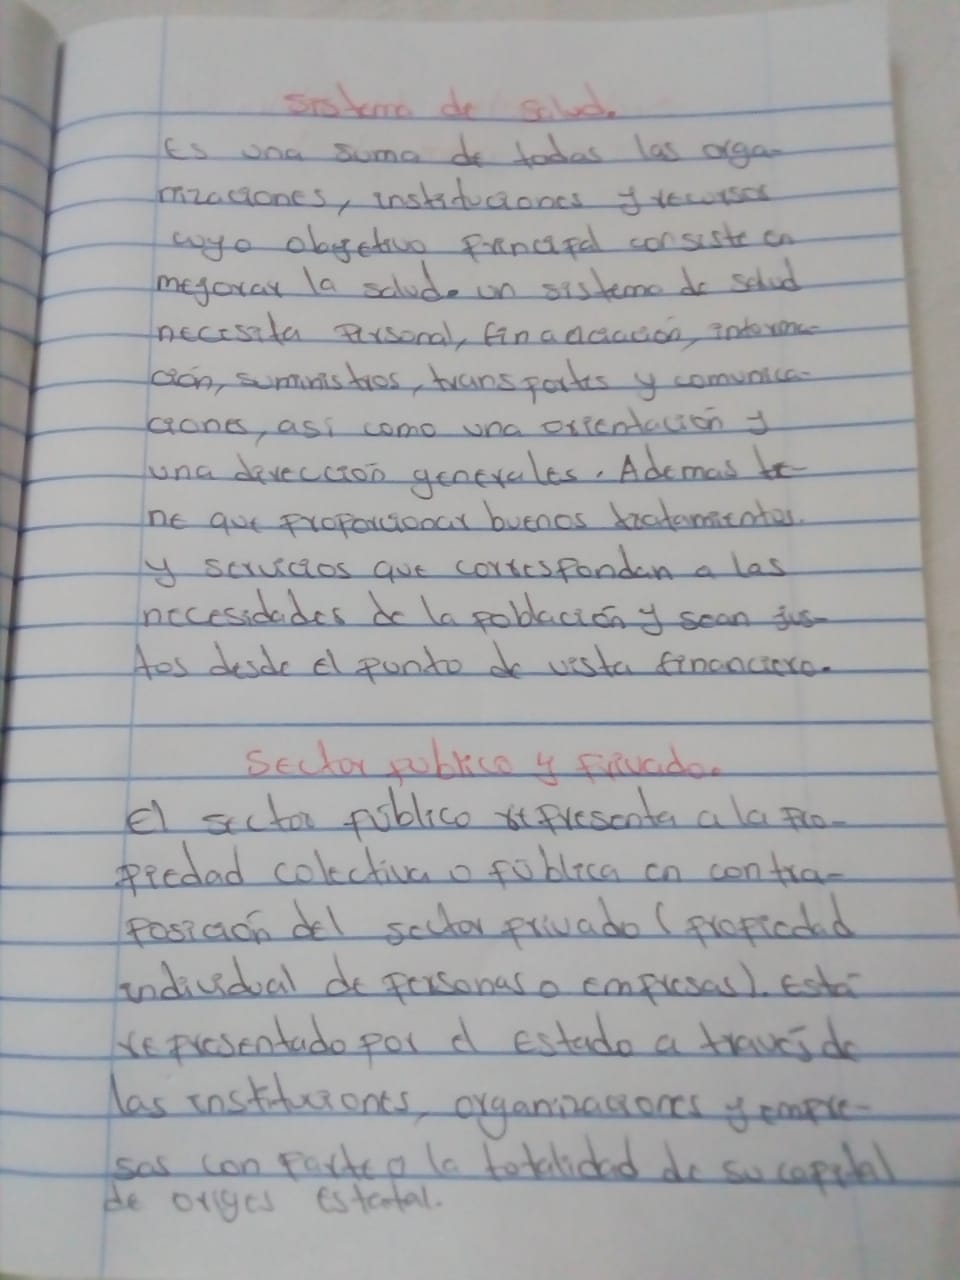 Sistema de salud.
Es una suma de todas las orga-
nizaciones, instituciones y recursos
cuyo objetivo principal consiste en
mejorar la salud. un sistema de salud
necesita personal, financiación, informa-
ción, suministros, transportes y comunica-
ciones, así como una orientación y
una dirección generales. Ademas tie-
ne que proporcionar buenos tratamientos
y servicios que correspondan a las
necesidades de la población y sean jus-
tos desde el punto de vista financiero.
Sector público y privado.
El sector público representa a la pro-
piedad colectiva o pública en contra-
posición del sector privado (propiedad
individual de personas o empresas). Está
representado por el Estado a través de
las instituciones, organizaciones y empre-
sas con parte o la totalidad de su capital
de origes estatal.